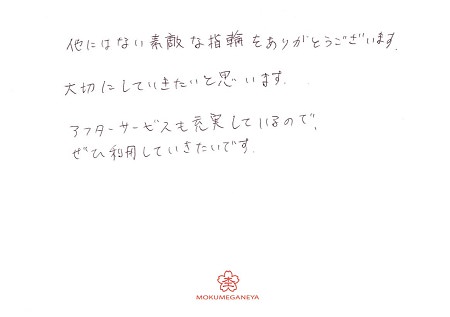 他にはない素敵な指輪をありがとうございます.
大切にしていきたいと思います.
アフターサービスも充実しているので,
ぜひ利用していきたいです.
MOKUMEGANEYA